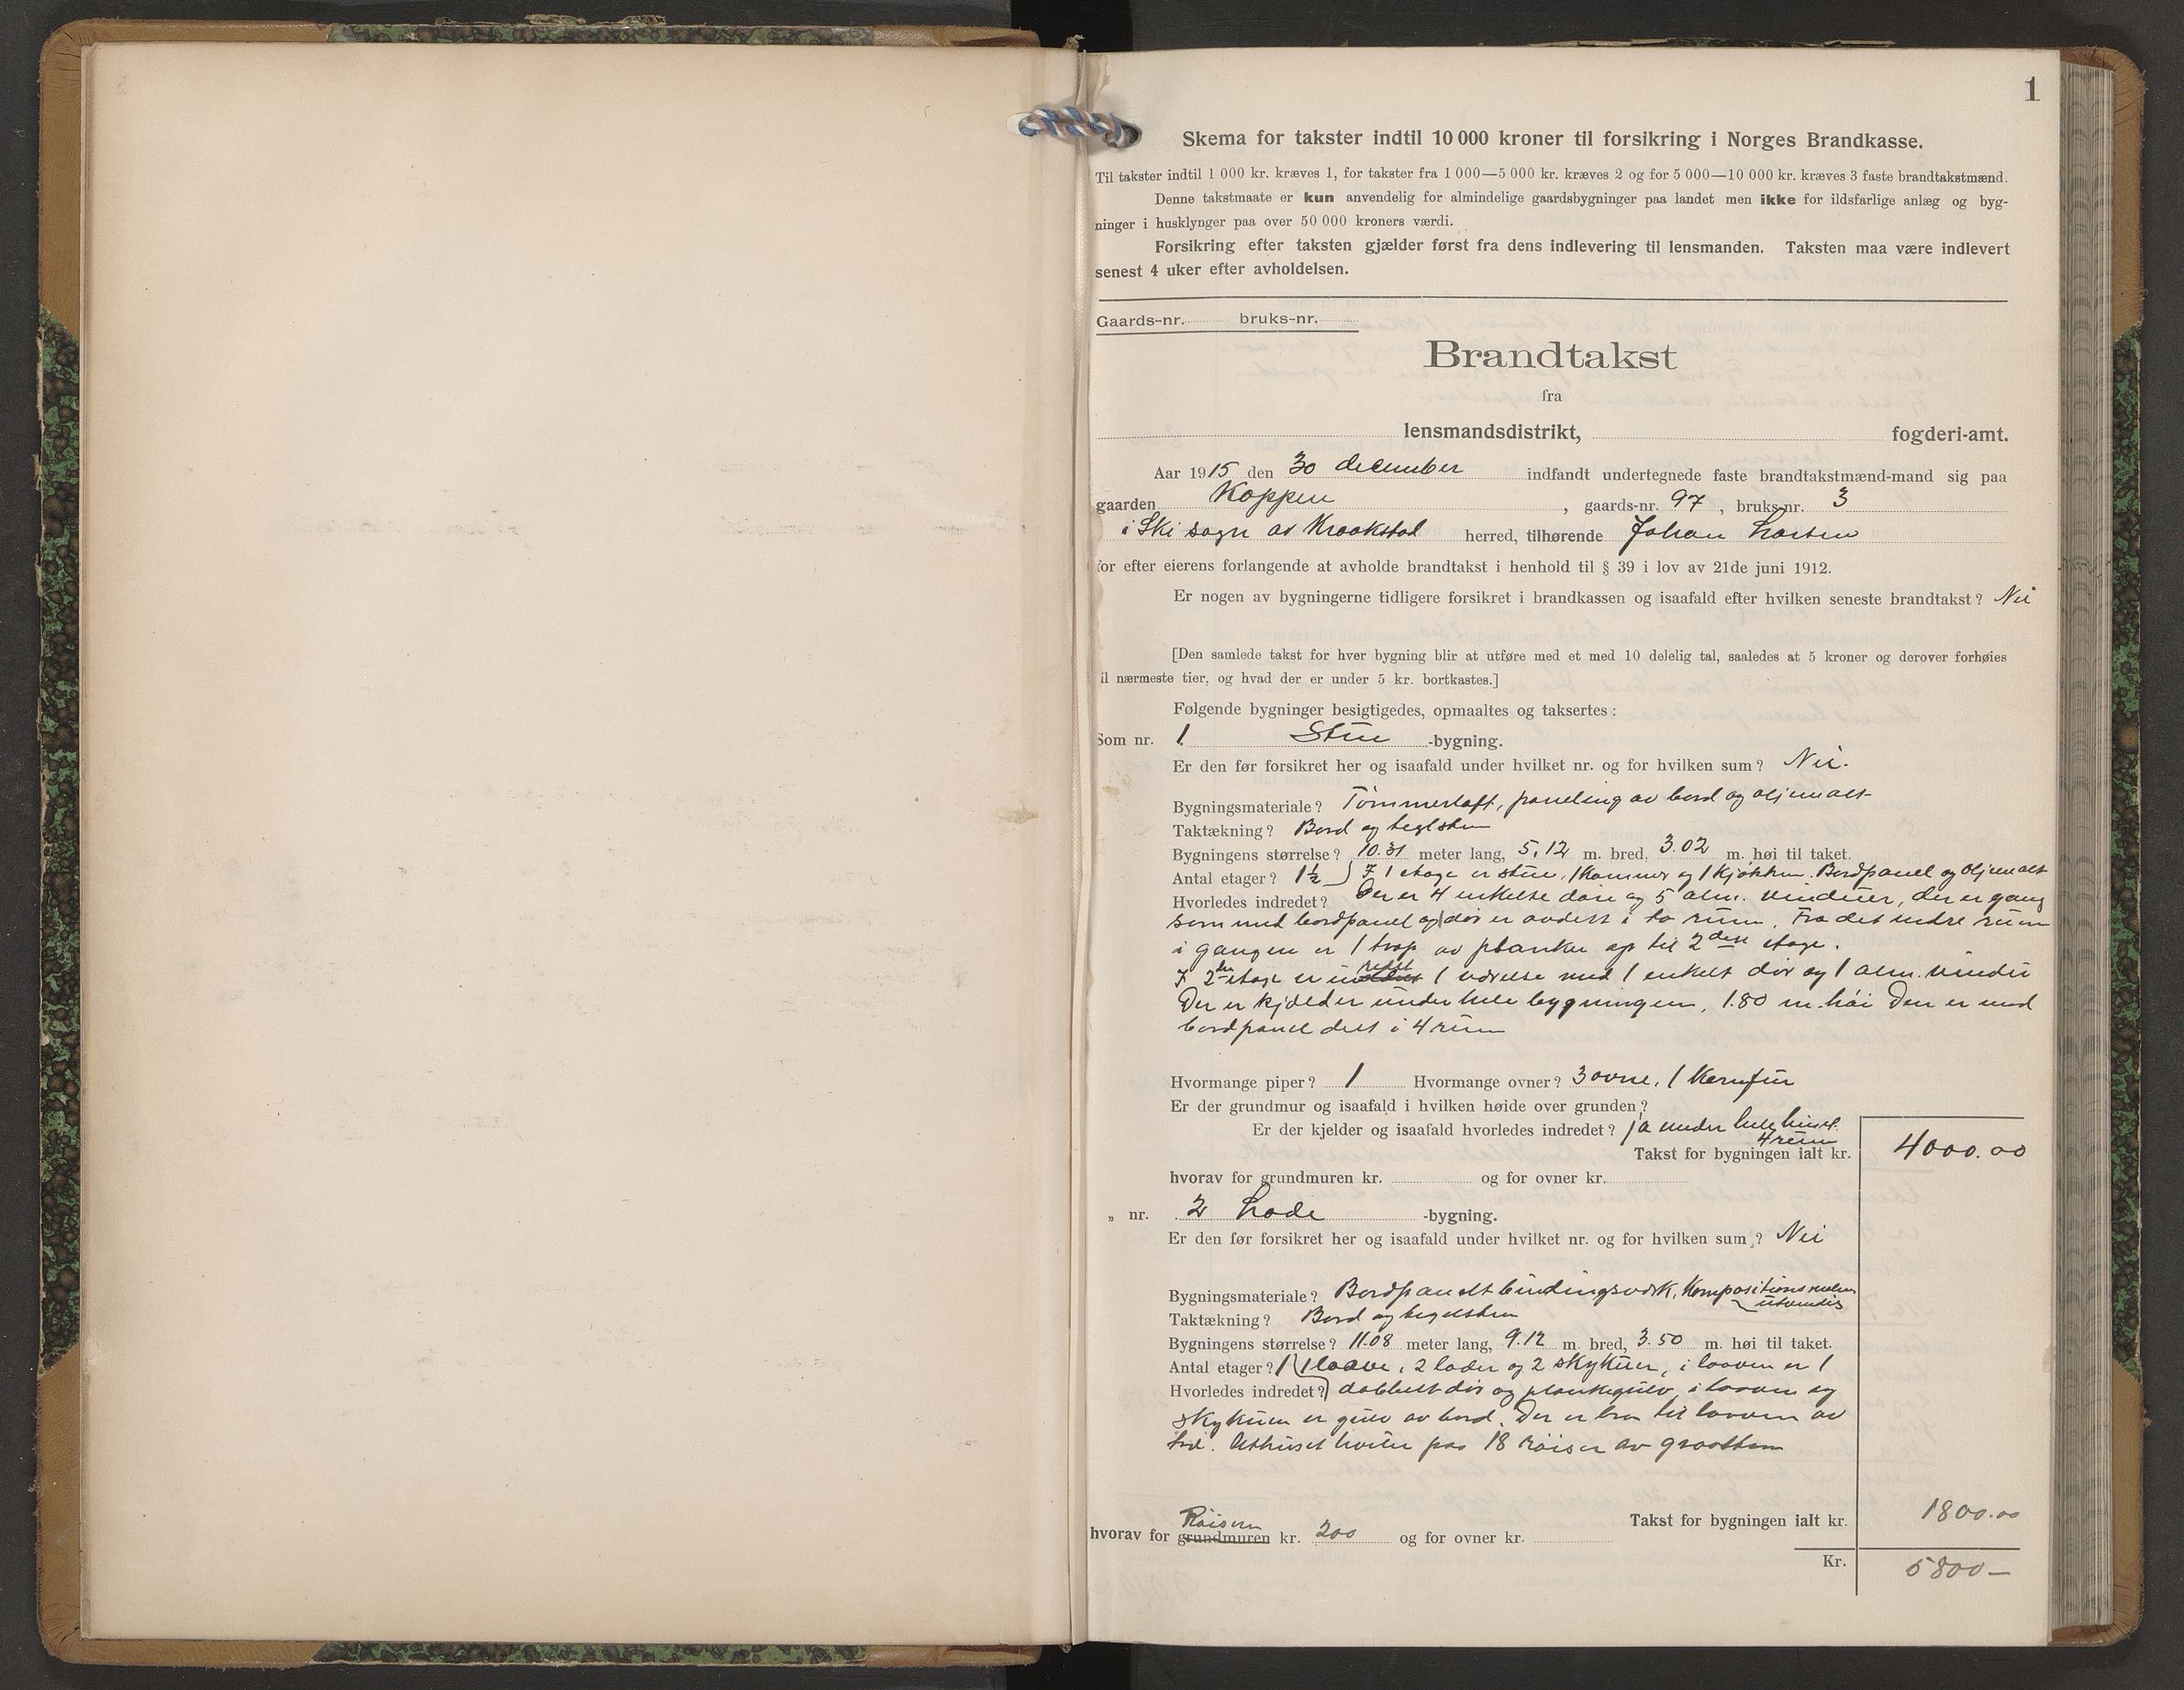 1
Skema for takster indtil 10 000 kroner til forsikring i Norges Brandkasse.
Til takster indtil 1 000 kr. kræves 1, for takster fra 1 000—5 000 kr. kræves 2 og for 5 000—10 000 kr. kræves 3 faste brandtakstmænd.
Denne takstmaate er kun anvendelig for almindelige gaardsbygninger paa landet men ikke for ildsfarlige anlæg og byg-
ninger i husklynger paa over 50 000 kroners værdi.
Forsikring efter taksten gjælder først fra dens indlevering til lensmanden. Taksten maa være indlevert
senest 4 uker efter avholdelsen.
Gaards-nr. bruks-nr.
Brandtakst
fra
lensmandsdistrikt, fogderi-amt.
Aar 1915 den 30 december indfandt undertegnede faste brandtakstmænd-mand sig paa
gaarden Koppen, gaards-nr. 97, bruks-nr. 3
i Ski sogn av Kraakstad herred, tilhørende Johan
for efter eierens forlangende at avholde brandtakst i henhold til § 39 i lov av 21de juni 1912.
Er nogen av bygningerne tidligere forsikret i brandkassen og isaafald efter hvilken seneste brandtakst? Nei
[Den samlede takst for hver bygning blir at utføre med et med 10 delelig tal, saaledes at 5 kroner og derover forhøies
il nærmeste tier, og hvad der er under 5 kr. bortkastes.]
Følgende bygninger besigtigedes, opmaaltes og taksertes:
Som nr. 1 Stue -bygning.
Er den før forsikret her og isaafald under hvilket nr. og for hvilken sum? Nei.
Bygningsmateriale? Tømmerlaft, paneling av bord og oljemalt
Taktækning? Bord og teglsten
Bygningens størrelse? 10.31 meter lang, 5,12 m. bred, 3.02 m. høi til taket.
Antal etager? 1½ I 1 etage er stue, 1 kammer og 1 kjøkken. Bordpanel og oljemalt
Hvorledes indredet? Der er 4 enkelte døre og 5 alm. vinduer, der er gang
som med bordpanel og dør er avdelt i to rum. Fra det indre rum
i gangen er 1 trap av planker op til 2den etage.
I 2den etage er indredet 1 værelse med 1 enkelt dør og 1 alm. vindu
Der er kjelder under hele bygningen, 1.80 m. høi Den er med
bordpanel delt i 4 rum
Hvormange piper? 1 Hvormange ovner? 3 ovne, 1 Komfur
Er der grundmur og isaafald i hvilken høide over grunden?
Er der kjelder og isaafald hvorledes indredet? ja under hele huset.
4 rum
Takst for bygningen ialt kr. 4000.00
hvorav for grundmuren kr. og for ovner kr.
„ nr. 2 Lade -bygning.
Er den før forsikret her og isaafald under hvilket nr. og for hvilken sum? Nei
Bygningsmateriale? Bordpanelt bindingsverk, Kompositionsmalm
utvendig
Taktækning? Bord og teglsten
Bygningens størrelse? 11.08 meter lang, 9.12 m. bred, 3.50 m. høi til taket.
Antal etager? 1 1 laave, 2 lader og 2 skykuer, i laaven er 1
Hvorledes indredet? dobbelt dør og plankegulv, i laaven og
skykuen er gulv av bord. Der er bro til laaven av
Uthuset hviler paa 18 røiser av graasten
Takst for bygningen ialt kr. 1800.00
Røisern
hvorav for grundmuren kr. 200 og for ovner kr.
Kr. 5800—